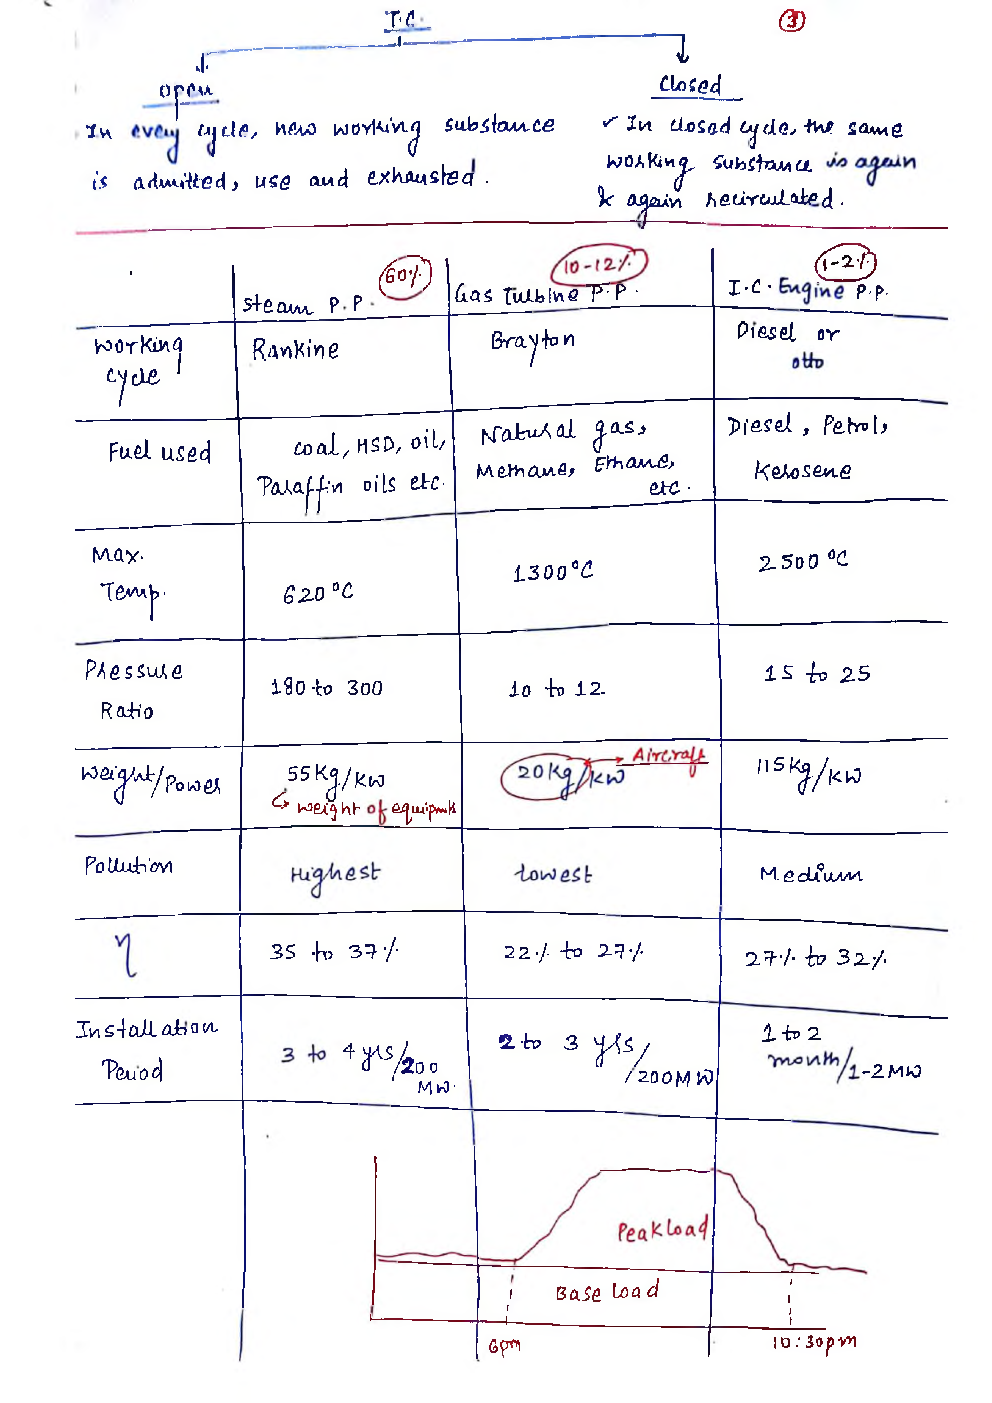 T.C.
3
open
closed
In every cycle, new working substance
is admitted, use and exhausted.
✓ In closed cycle, the same
working substance is again
& again recirculated.
60%
10-12%
1-2%
Steam P.P.
Gas Turbine P.P.
I.C. Engine P.P.
Working
cycle
Rankine
Brayton
Diesel or
otto
Fuel used
coal, HSD, oil,
Paraffin oils etc.
Natural gas,
Methane, Ethane,
etc.
Diesel, Petrol,
Kerosene
Max.
Temp.
620°C
1300°C
2500°C
Pressure
Ratio
180 to 300
10 to 12
15 to 25
Weight/Power
55Kg/KW
↳ weight of equipmnt
20Kg/KW
→ Aircraft
115Kg/KW
Pollution
Highest
Lowest
Medium
η
35 to 37%
22% to 27%
27% to 32%
Installation
Period
3 to 4 yrs/200
MW.
2 to 3 yrs
/200MW
1 to 2
month/1-2MW
Peak load
Base load
6pm
10:30pm